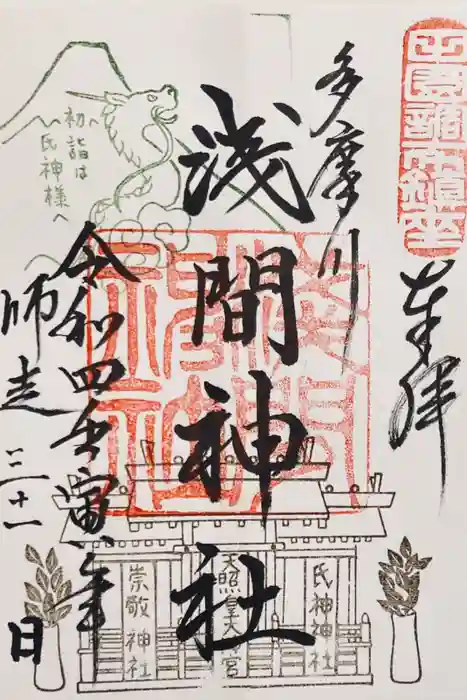 奉拝
多摩川
浅間神社
令和四壬寅年
師走三十一日
初詣は
氏神様へ
氏神神社
天照皇大神宮
崇敬神社